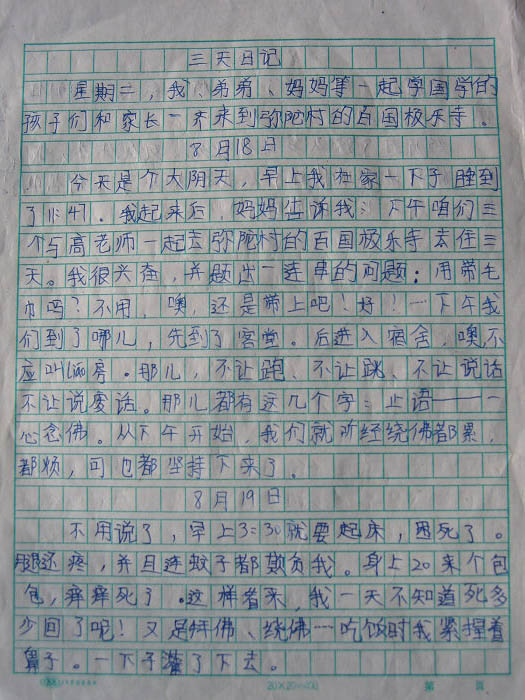 三天日记
星期二，我、弟弟、妈妈等一起学国学的
孩子们和家长一齐来到弥陀村的百国极乐寺。
8月18日
今天是个大阴天，早上我在家一下子睡到
了11:47。我起来后，妈妈告诉我：下午咱们三
个与高老师一起去弥陀村的百国极乐寺去住三
天。我很兴奋，并题出一连串的问题：用带毛
巾吗？不用，噢，还是带上吧！好！一下午我
们到了哪儿，先到了客堂。后进入宿舍，噢，不
应叫liáo房。那儿，不让跑、不让跳、不让说话
不让说废话。那儿都有这几个字：止语——一
心念佛。从下午开始，我们就听经绕佛都累，
都烦，可也都坚持下来了。
8月19日
不用说了，早上3:30就要起床，困死了。
腿还疼，并且连蚊子都欺负我。身上20来个包
包，痒痒死了。这样看来，我一天不知道死多
少回了呢！又是拜佛、绕佛…吃饭时我紧捏着
鼻子。一下子灌了下去。
20×20=400
第 页